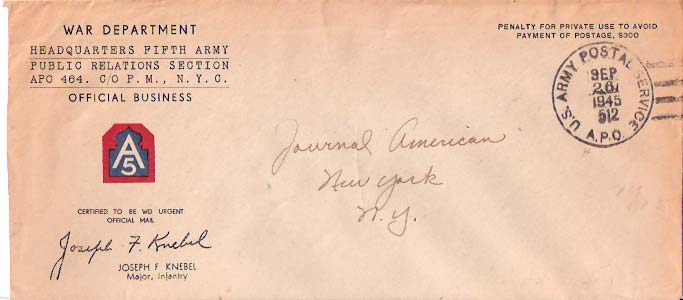 WAR DEPARTMENT
HEADQUARTERS FIFTH ARMY
PUBLIC RELATIONS SECTION
APO 464. C/O P.M., N.Y.C.
OFFICIAL BUSINESS
PENALTY FOR PRIVATE USE TO AVOID
PAYMENT OF POSTAGE, $300
U.S. ARMY POSTAL SERVICE
SEP
26
1945
512
A.P.O.
A
5
Journal American
New York
N.Y.
CERTIFIED TO BE WD URGENT
OFFICIAL MAIL
Joseph F. Knebel
JOSEPH F. KNEBEL
Major, Infantry